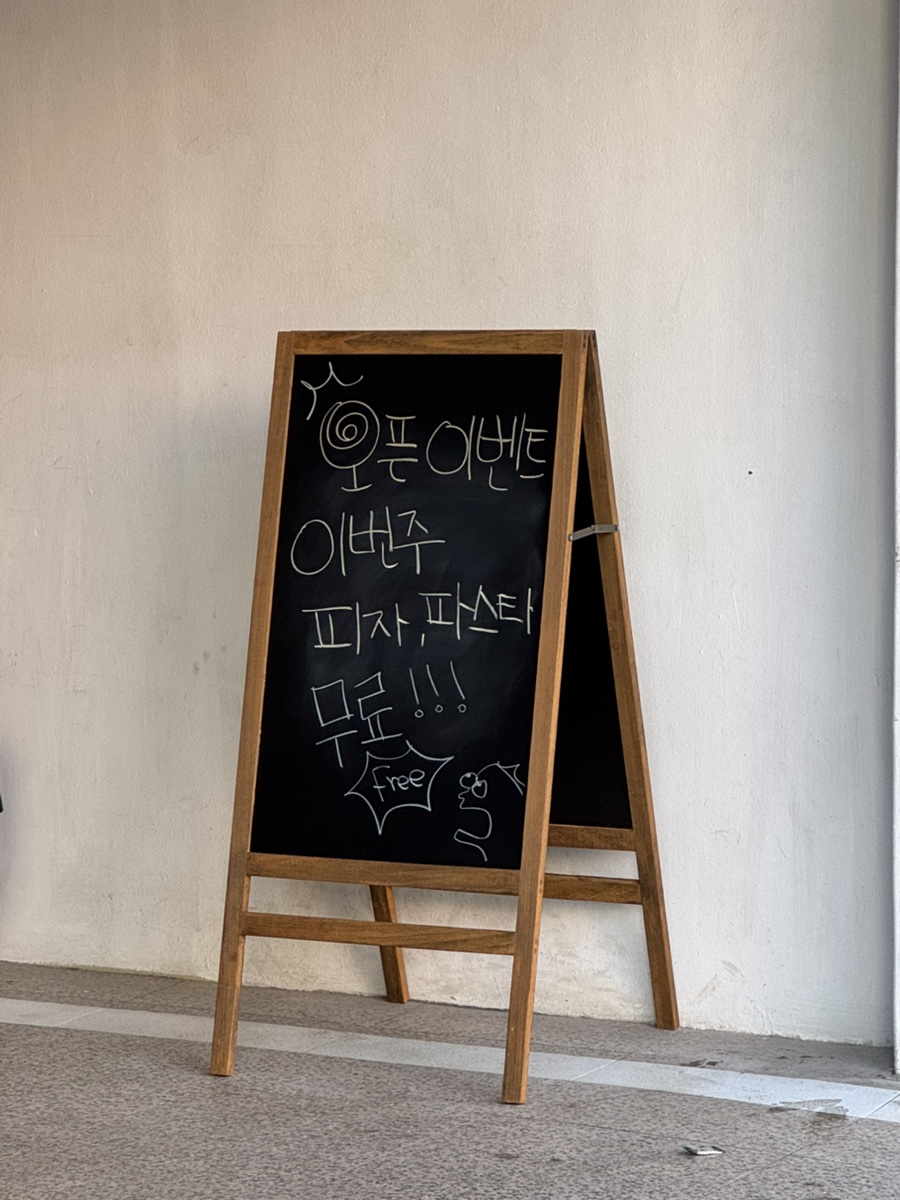 오픈 이벤트
이번주
피자, 파스타
무료!!!
free